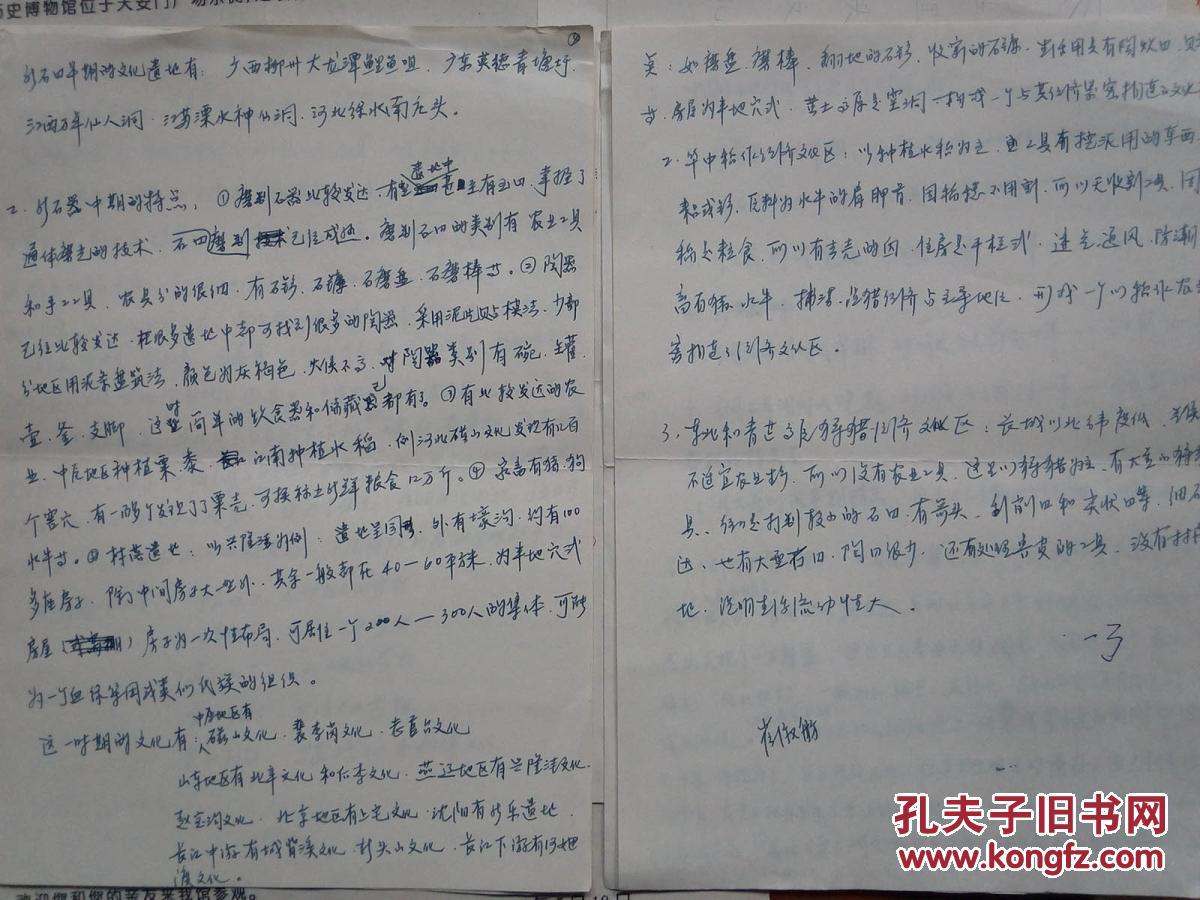 历史博物馆位于天安门广场东侧
新石器早期的文化遗址有：广西柳州大龙潭鲤鱼咀、广东英德青塘圩、
江西万年仙人洞、江苏溧水神仙洞、河北徐水南庄头。
二、新石器中期的特点，①磨制石器比较发达，遗址中主有石四，掌握了
通体磨光的技术，石四磨制已经成熟。磨制石四的类别有农业工具
和手工工具，农具分的很细，有石铲、石镰、石磨盘、石磨棒等。②陶器
已经比较发达，在很多遗址中都可找到很多的陶器，采用泥片贴模法，少部
分地区用泥条盘筑法，颜色为灰褐色，火候不高，陶器类别有碗、罐、
壶、釜、支脚，这时简单的饮食器和储藏器都有了。③有比较发达的农
业，中原地区种植粟、黍，江南种植水稻，例河北磁山文化发现有二百
个窖穴，有一部分发现了粟壳，可换标上新鲜粮食12万斤。④家畜有猪、狗
水牛等。⑤村落遗址：以兴隆洼为例：遗址呈圆形，外有壕沟，约有100
多座房子，除了中间房子大一些外，其余一般都在40—60平方米，为半地穴式
房屋（）房子为一次性布局，可居住一个200人—300人的集体，可能
为一个血缘等同或类似氏族的组织。
这一时期的文化有：中原地区有磁山文化、裴李岗文化、老官台文化
山东地区有北辛文化和后李文化、燕辽地区有兴隆洼文化、
赵宝沟文化、北京地区有上宅文化、沈阳有新乐遗址、
长江中游有城背溪文化、彭头山文化、长江下游有河姆
渡文化。
欢迎您和您的亲友来我馆参观。
具：如磨盘、磨棒，翻地的石铲，收割的石镰，
房屋为半地穴式，黄土高原是窑洞
2、华中稻作经济文化区：以种植水稻为主，
耒耜或铲，原料为水牛的肩胛骨，因稻穗不用割，所以无收割工具，因
稻是粒食，所以有去壳的臼，住房是干栏式，进光、通风、防潮
畜有猪、水牛，捕捞、渔猎经济占主导地位，形成一个以稻作农业
窖构建的经济文化区。
3、东北和青藏高原狩猎经济文化区：长城以北纬度低，
不适宜农业生产，所以没有农业工具，这里以狩猎为主，有大量的狩猎
具，打制较小的石四，有箭头、刮削四和尖状四等，细石
达、也有大型石四，陶四很少，还有处理兽皮的工具，没有村
地，说明生活流动性大。
孔夫子旧书网
www.kongfz.com